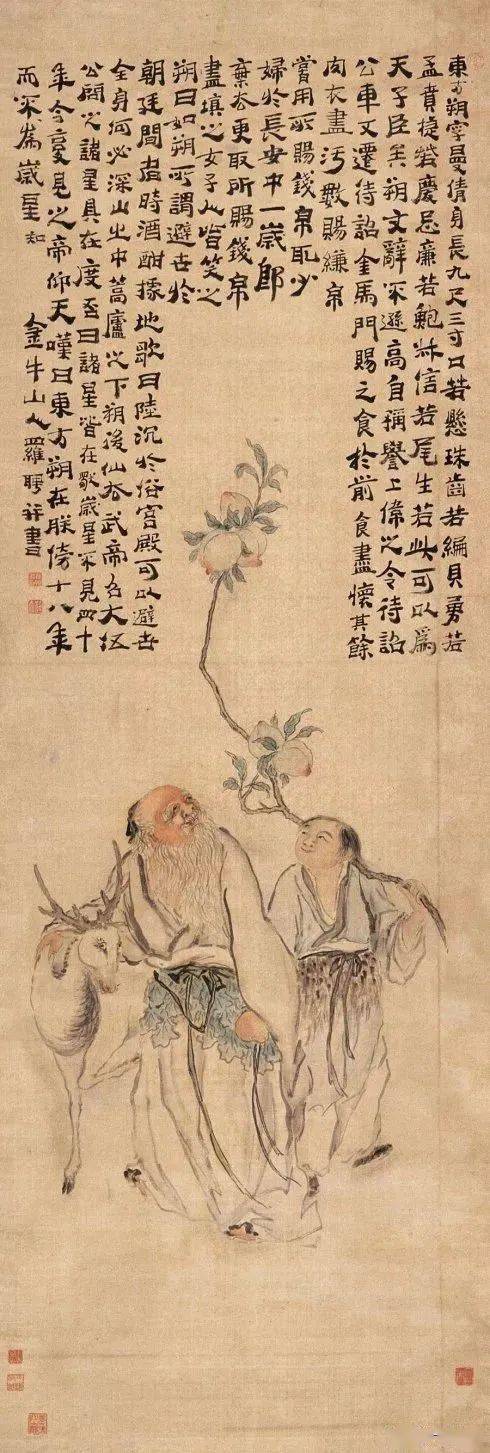 東方朔字曼倩身長九尺三寸口若懸珠齒若編貝勇若
孟賁捷若慶忌廉若鮑叔信若尾生若此可以爲
天子臣矣朔文辭不遜高自稱譽上偉之令待詔
公車又遷待詔金馬門賜之食於前食盡懷其餘
肉衣盡汙數賜縑帛
嘗用所賜錢帛取少
婦於長安中一歲即
棄去更取所賜錢帛
盡填之女子人皆笑之
朔曰如朔所謂避世於
朝廷間者時酒酣據地歌曰陸沉於俗宮殿可以避世
全身何必深山之中蒿廬之下朔後仙去武帝召大伍
公問之諸星具在度否曰諸星皆在獨歲星不見四十
年今复見之帝仰天嘆曰東方朔在朕傍十八年
而不爲歲星知
金牛山人羅聘并書